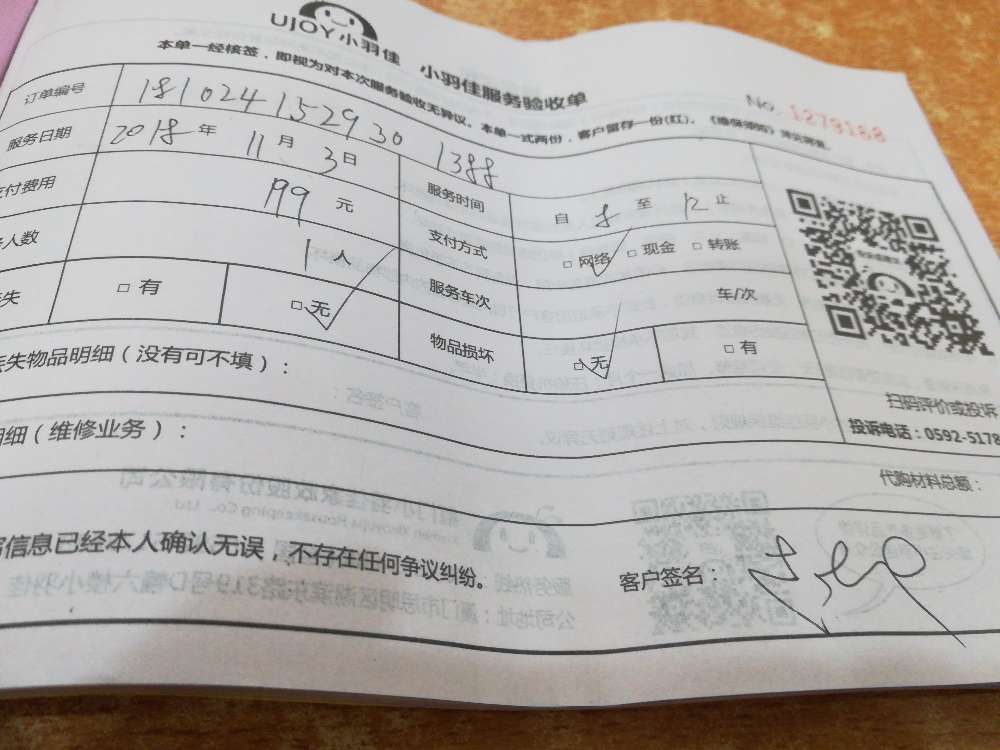 UJOY小羽佳 小羽佳服务验收单
No. 1279168
本单一经核签，即视为对本次服务验收无异议。本单一式两份，客户留存一份(红)。
订单编号 181024152930 1388
服务日期 2018年 11月 3日 服务时间 自 8 至 12 止
支付费用 199 元 支付方式 □网络 □现金 □转账
人数 1人 服务车次 车/次
失 □有 □无 物品损坏 □无 □有
失物品明细（没有可不填）：
扫码评价或投诉
投诉电话：0592-5178
明细（维修业务）：
代购材料总额：
信息已经本人确认无误，不存在任何争议纠纷。 客户签名：